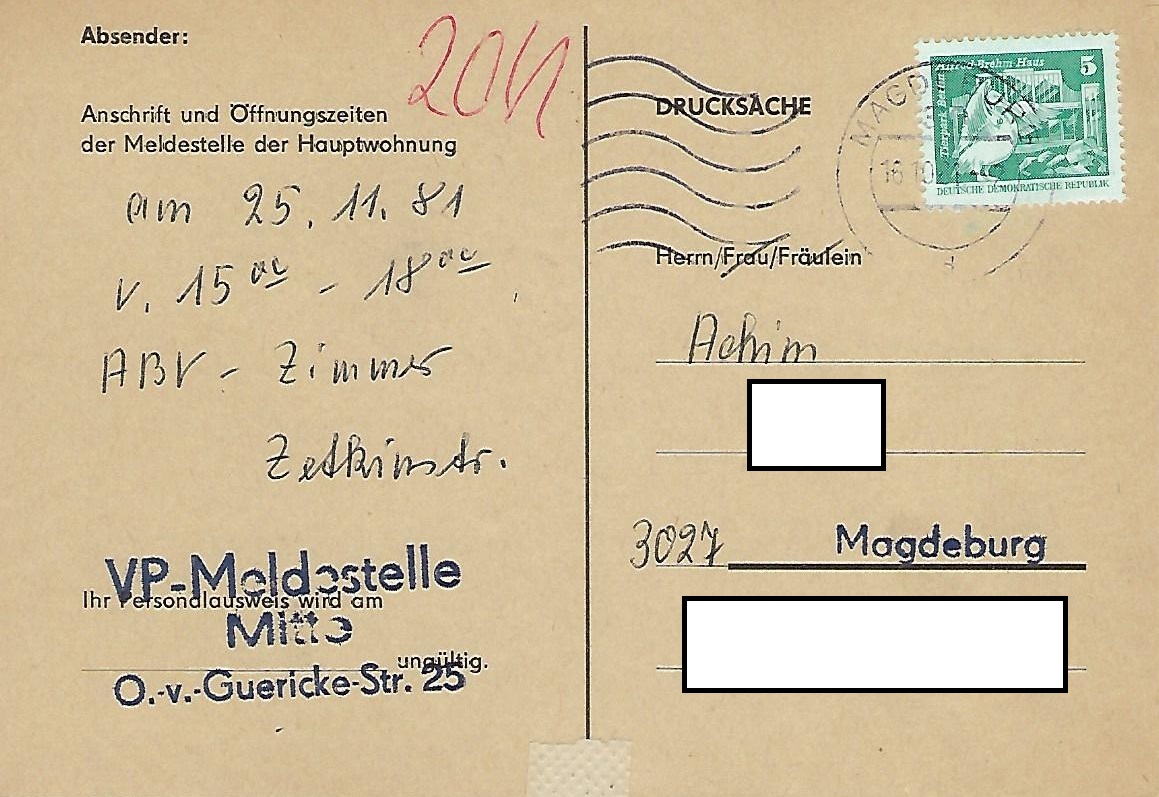 Absender:
Anschrift und Öffnungszeiten
der Meldestelle der Hauptwohnung
am 25. 11. 81
v. 15 00 - 18 00
ABV - Zimmer
Zetkinstr.
VP-Meldestelle
Ihr Personalausweis wird am
Mitte
ungültig.
O.-v.-Guericke-Str. 25
DRUCKSACHE
Alfred-Brehm-Haus
5
Tierpark Berlin
DEUTSCHE DEMOKRATISCHE REPUBLIK
MAGDEBURG
16.10.
Herrn/Frau/Fräulein
Achim
3027 Magdeburg